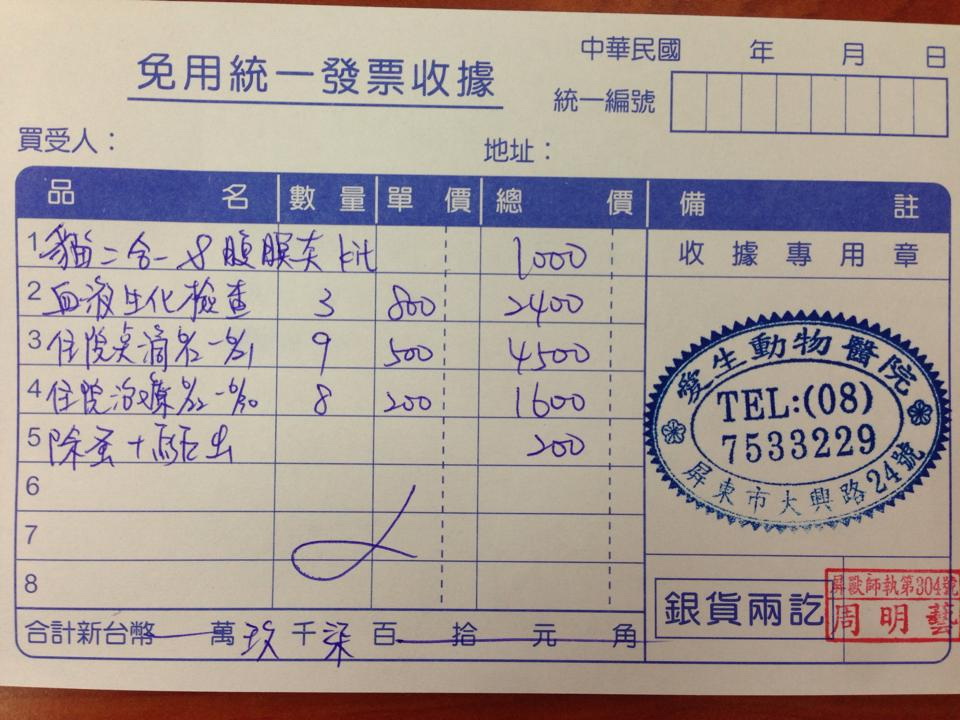 免用統一發票收據
中華民國 年 月 日
統一編號
買受人：
地址：
品名 數量 單價 總價 備註
1 貓二合一 腹膜炎 kit 1000
2 血液生化檢查 3 800 2400
3 住院點滴 9 500 4500
4 住院治療 8 200 1600
5 除蚤+驅虫 200
6
7
8
合計新台幣 萬玖千柒百 拾 元 角
收據專用章
愛生動物醫院
TEL:(08)
7533229
屏東市大興路24號
銀貨兩訖
屏獸師執第304號
周明藝